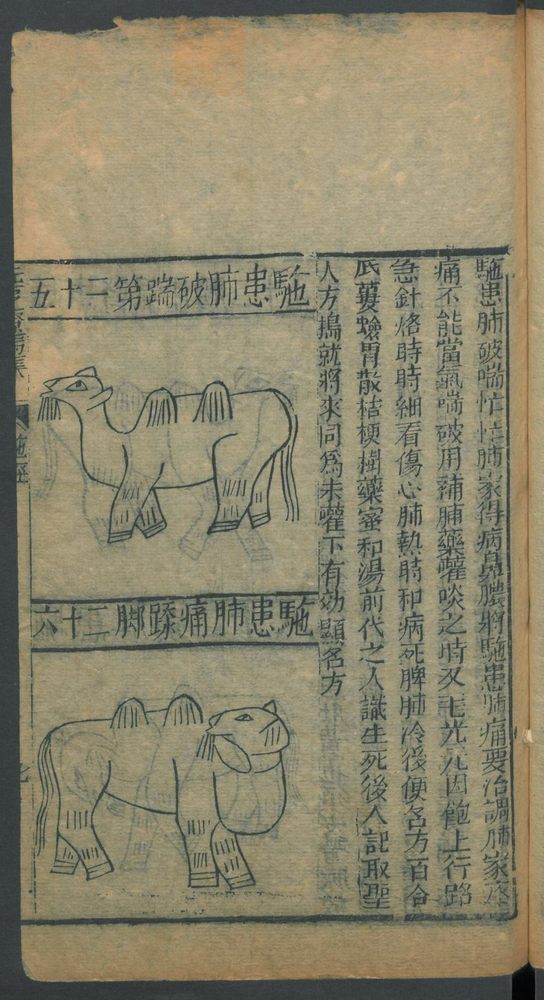 駞患肺破喘忙忙肺家得病鼻膿將駞患肺痛要治調肺家
痛不能當氣喘破用補肺藥嚾啖之時双毛光光因飽上行路
急針烙時時細看傷心肺熱時和病死脾肺冷後便名方百合
蔞蛤胃散桔梗樹藥蜜和湯前代之人識生死後人記取聖
人方搗就將來同爲末嚾下有効顯名方
駞患肺破喘第二十五
駞患肺痛蹂脚二十六
駞經